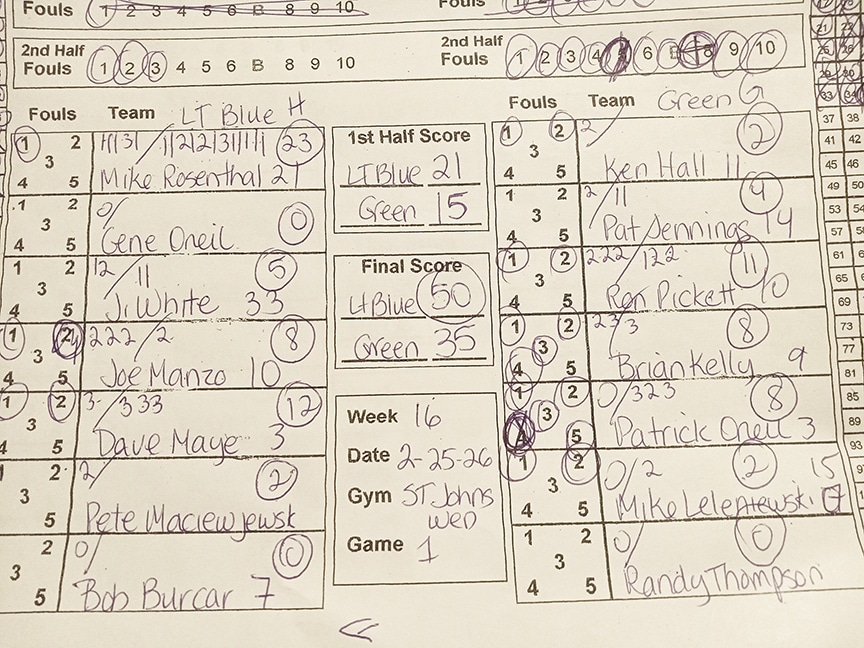 Fouls 1 2 3 4 5 6 B 8 9 10
Fouls
2nd Half Fouls 1 2 3 4 5 6 B 8 9 10
2nd Half Fouls 1 2 3 4 5 6 B 8 9 10
Fouls Team LT Blue H
1 2 3 4 5
23
Mike Rosenthal 21
1 2 3 4 5
0/ 0
Gene Oneil
1 2 3 4 5
12/11 5
J. White 33
1 2 3 4 5
222/2 8
Joe Manzo 10
1 2 3 4 5
3/333 12
Dave Maye 3
1 2 3 5
2/ 2
Pete Maciewjewsk
2 3 5
0/ 0
Bob Burcar 7
1st Half Score
LT Blue 21
Green 15
Final Score
Lt Blue 50
Green 35
Week 16
Date 2-25-26
Gym ST Johns
wen
Game 1
Fouls Team Green G
1 2 3 4 5
2/ 2
Ken Hall 11
1 2 3 4 5
2/11 4
Pat Jennings 14
1 2 3 4 5
222/122 11
Ron Pickett 10
1 2 3 4 5
23/3 8
Brian Kelly 9
1 2 3 4 5
0/323 8
Patrick Oneil 3
1 2 3 4 5
0/2 2 15
1 2 3 4 5
0/ 0
Randy Thompson
37 38
41 42
45 46
49 50
53 54
57
61
65
69
73
77
81
85
89
93